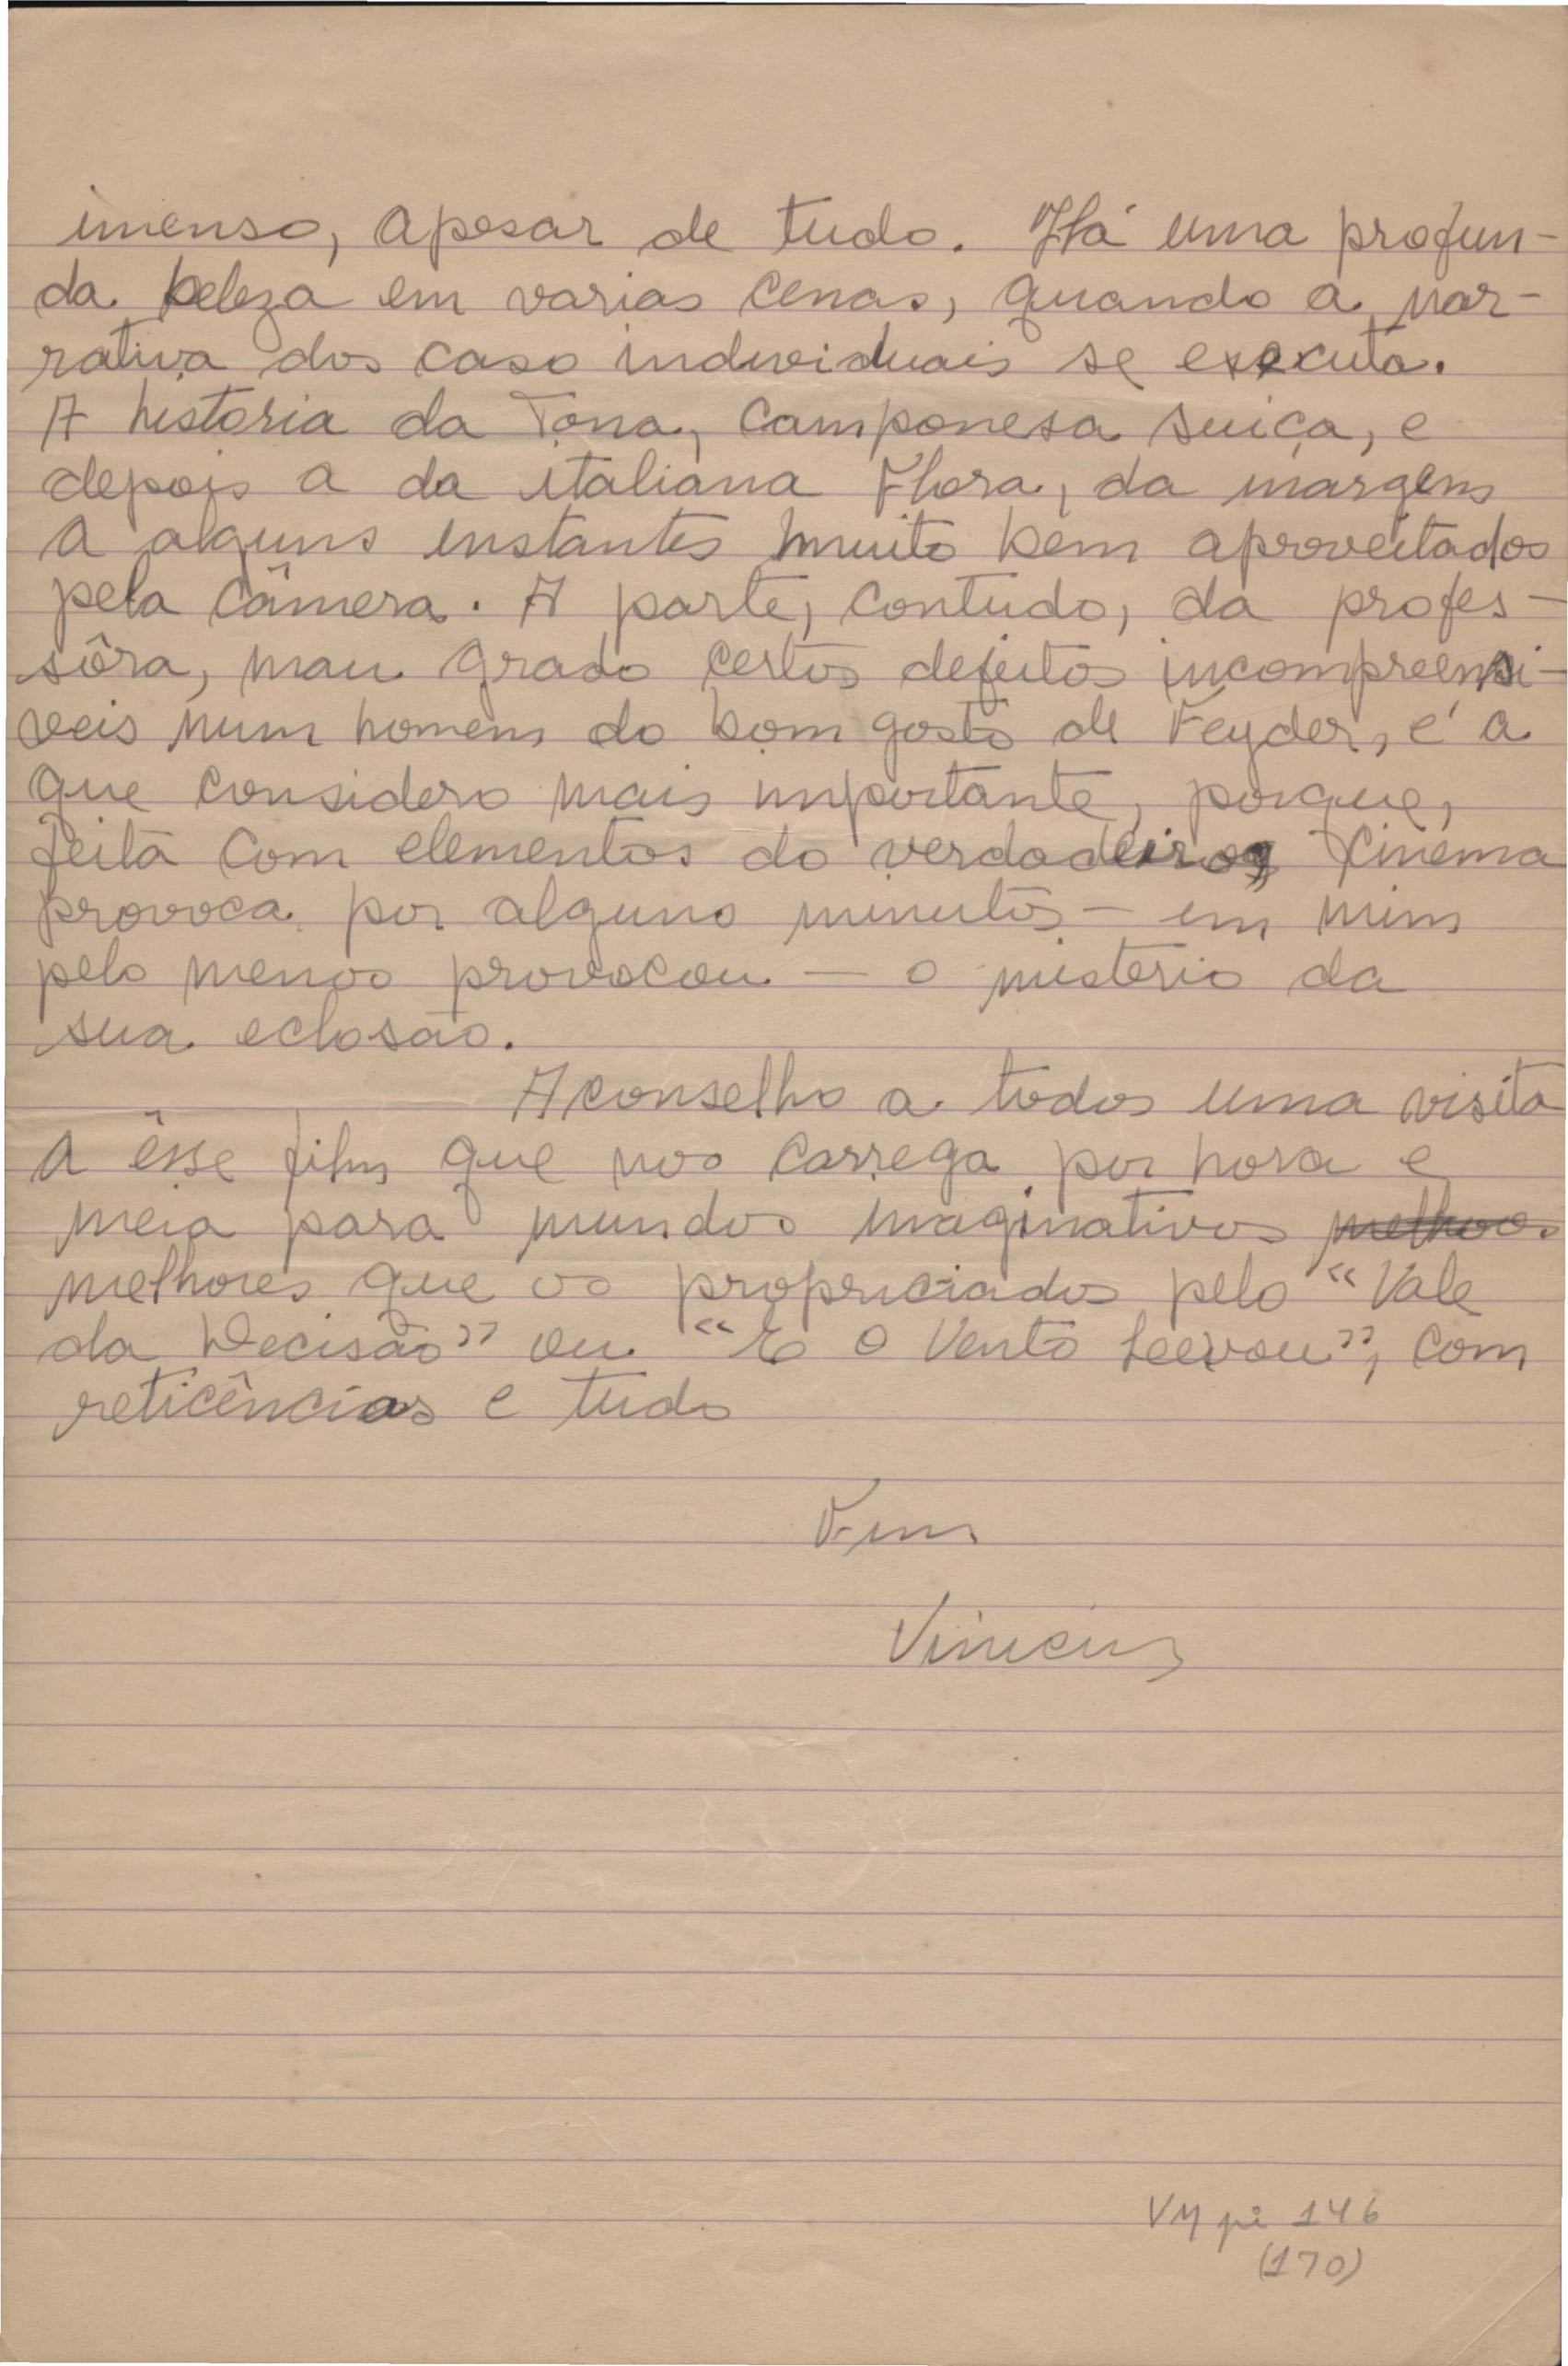 imenso, apesar de tudo. Há uma profun-
da beleza em varias cenas, quando a nar-
rativa dos caso individuais se executa.
A historia da Tona, camponesa suiça, e
depois a da italiana Flora, da margem
a alguns instantes muito bem aproveitados
pela câmera. A parte, contudo, da profes-
sôra, mau grado certos defeitos incompreensi-
veis num homem do bom gosto de Feyder, é a
que considero mais importante, porque,
feita com elementos do verdadeiro cinema
provoca por alguns minutos - em mim
pelo menos provocou - o misterio da
sua eclosão.
Aconselho a todos uma visita
a êsse film que nos carrega por hora e
meia para mundos imaginativos
melhores que os propiciados pelo "Vale
da Decisão" ou "E o Vento Levou", com
reticências e tudo
Fim
Vinicius
VM pi 146
(170)